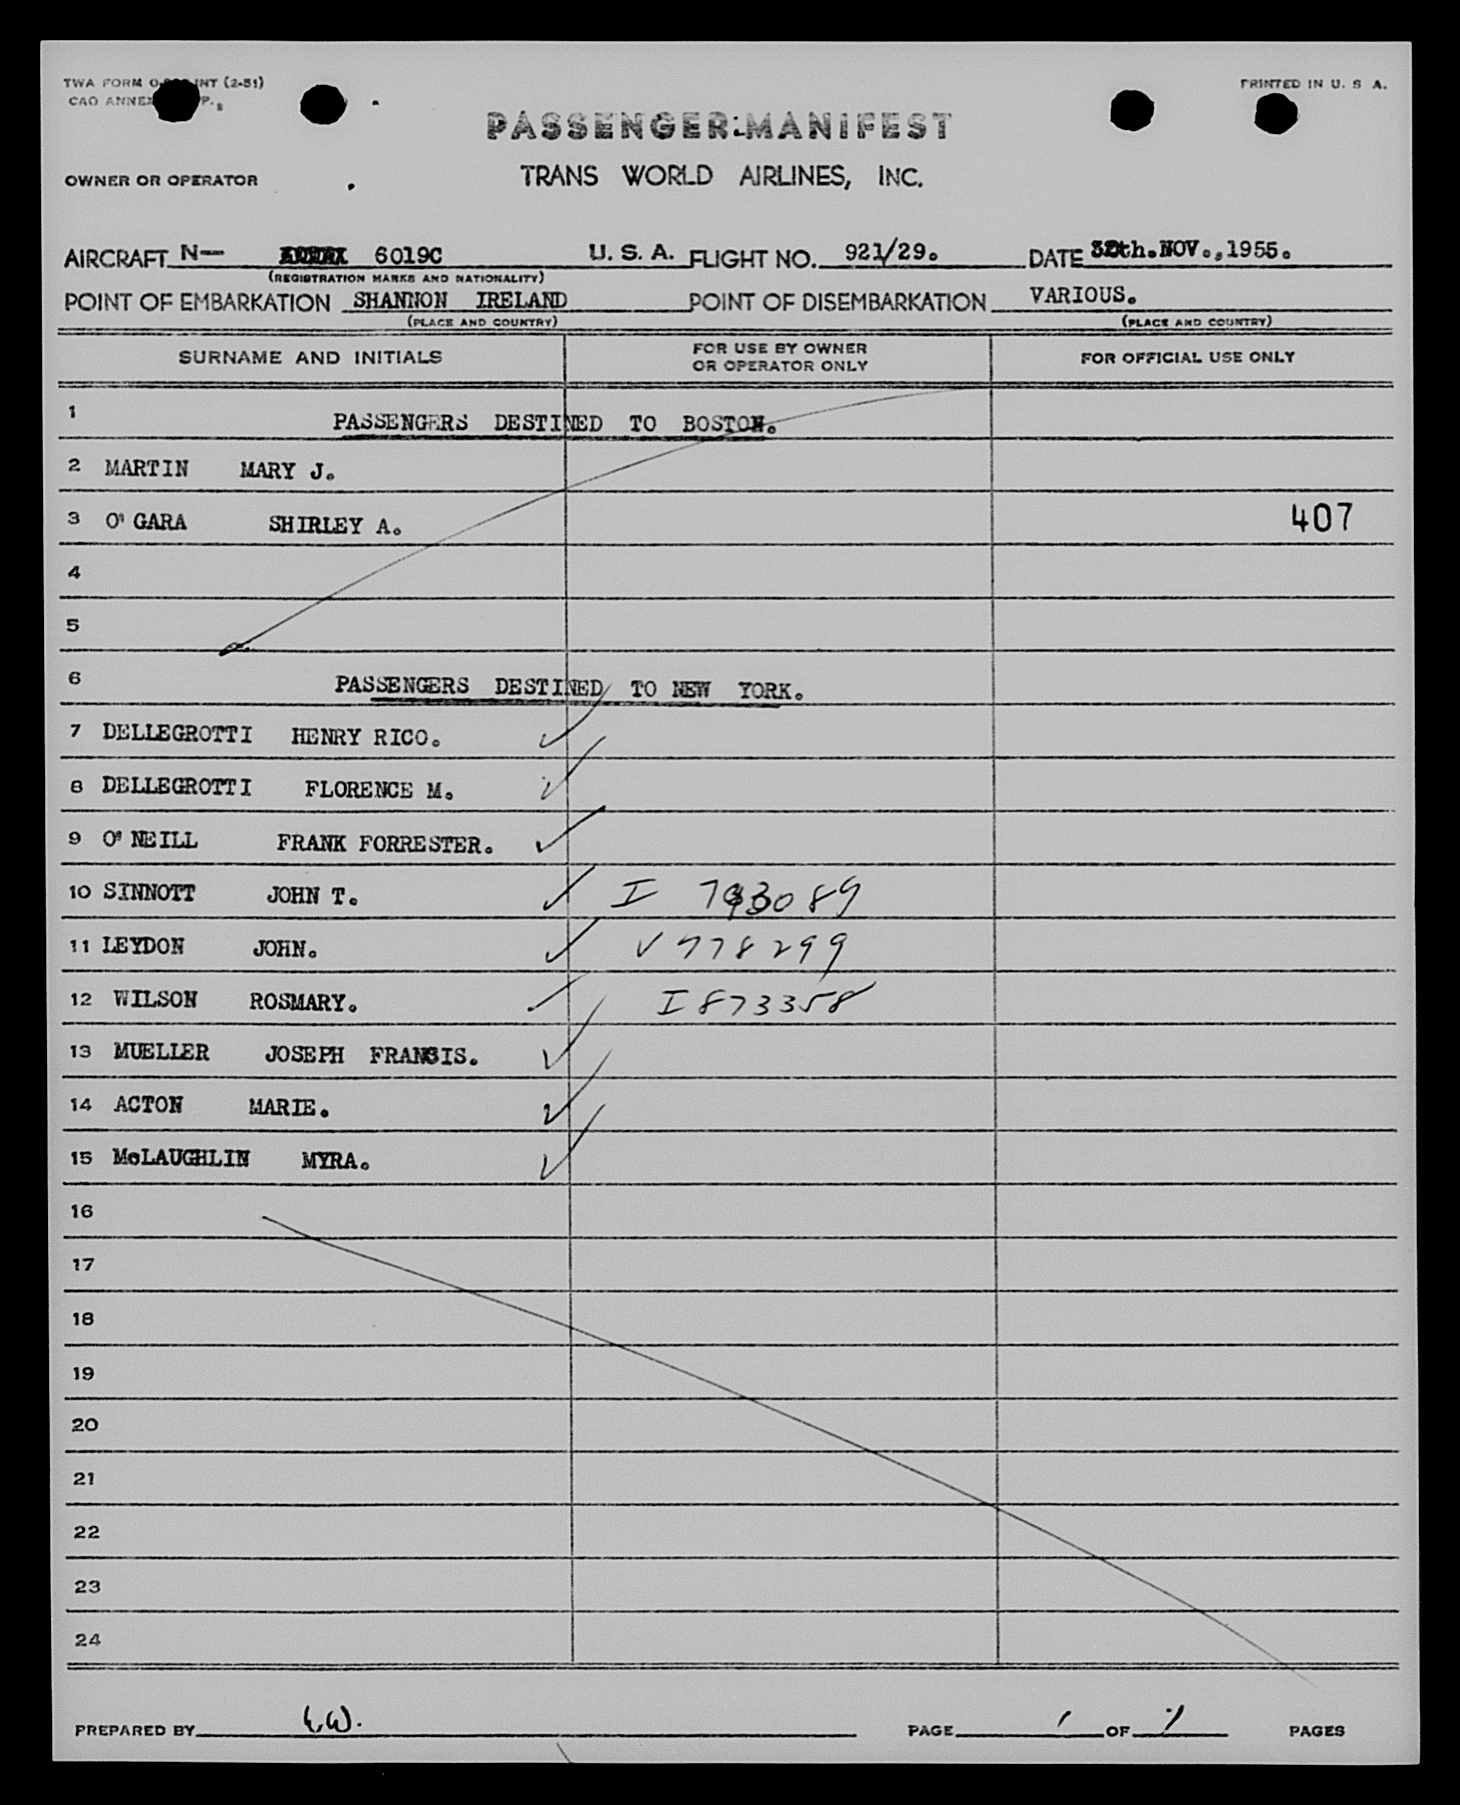 TWA FORM INT (2-51)
PRINTED IN U. S A.
CAO ANNEX
PASSENGER MANIFEST
OWNER OR OPERATOR
TRANS WORLD AIRLINES, INC.
AIRCRAFT N— 6019C U. S. A. FLIGHT NO. 921/29. DATE NOV.,1955.
(REGISTRATION MARKS AND NATIONALITY)
POINT OF EMBARKATION SHANNON IRELAND POINT OF DISEMBARKATION VARIOUS.
(PLACE AND COUNTRY) (PLACE AND COUNTRY)
SURNAME AND INITIALS FOR USE BY OWNER OR OPERATOR ONLY FOR OFFICIAL USE ONLY
1 PASSENGERS DESTINED TO BOSTON.
2 MARTIN MARY J.
3 O'GARA SHIRLEY A. 407
4
5
6 PASSENGERS DESTINED TO NEW YORK.
7 DELLEGROTTI HENRY RICO.
8 DELLEGROTTI FLORENCE M.
9 O'NEILL FRANK FORRESTER.
10 SINNOTT JOHN T. I 793089
11 LEYDON JOHN. V778299
12 WILSON ROSMARY. I873358
13 MUELLER JOSEPH FRANSIS.
14 ACTON MARIE.
15 McLAUGHLIN MYRA.
16
17
18
19
20
21
22
23
24
PREPARED BY PAGE 1 OF PAGES